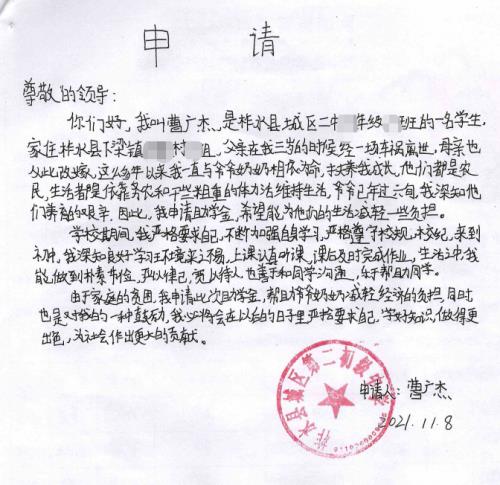 申 请
尊敬的领导:
你们好,我叫曹广杰,是柞水县城区二中 年级 班的一名学生,
家住柞水县下梁镇 村 组,父亲在我三岁的时候经一场车祸离世,母亲也
从此改嫁,这么多年以来我一直与爷爷奶奶相依为命,扶养我成长,他们都是农
民,生活都是依靠务农和干些粗重的体力活维持生活,爷爷已年过六旬,我深知他
们养育的艰辛,因此,我申请助学金,希望能为他们的生活减轻一些负担。
学校期间,我严格要求自己,不断加强自身学习,严格遵守校规、校纪,来到
初中,我深知良好学习环境来之不易,上课认真听课,课后及时完成作业,生活中我
能做到朴素节俭,严以律己,宽以待人,也善于和同学沟通,乐于帮助同学。
由于家庭的贫困,我申请此次助学金,帮助爷爷奶奶减轻经济的负担,同时
也是对我的一种鼓励,我必将会在以后的日子里严格要求自己,学好知识,做得更
出色,为社会作出更大的贡献。
柞水县城区第二初级中学
申请人:曹广杰
2021.11.8